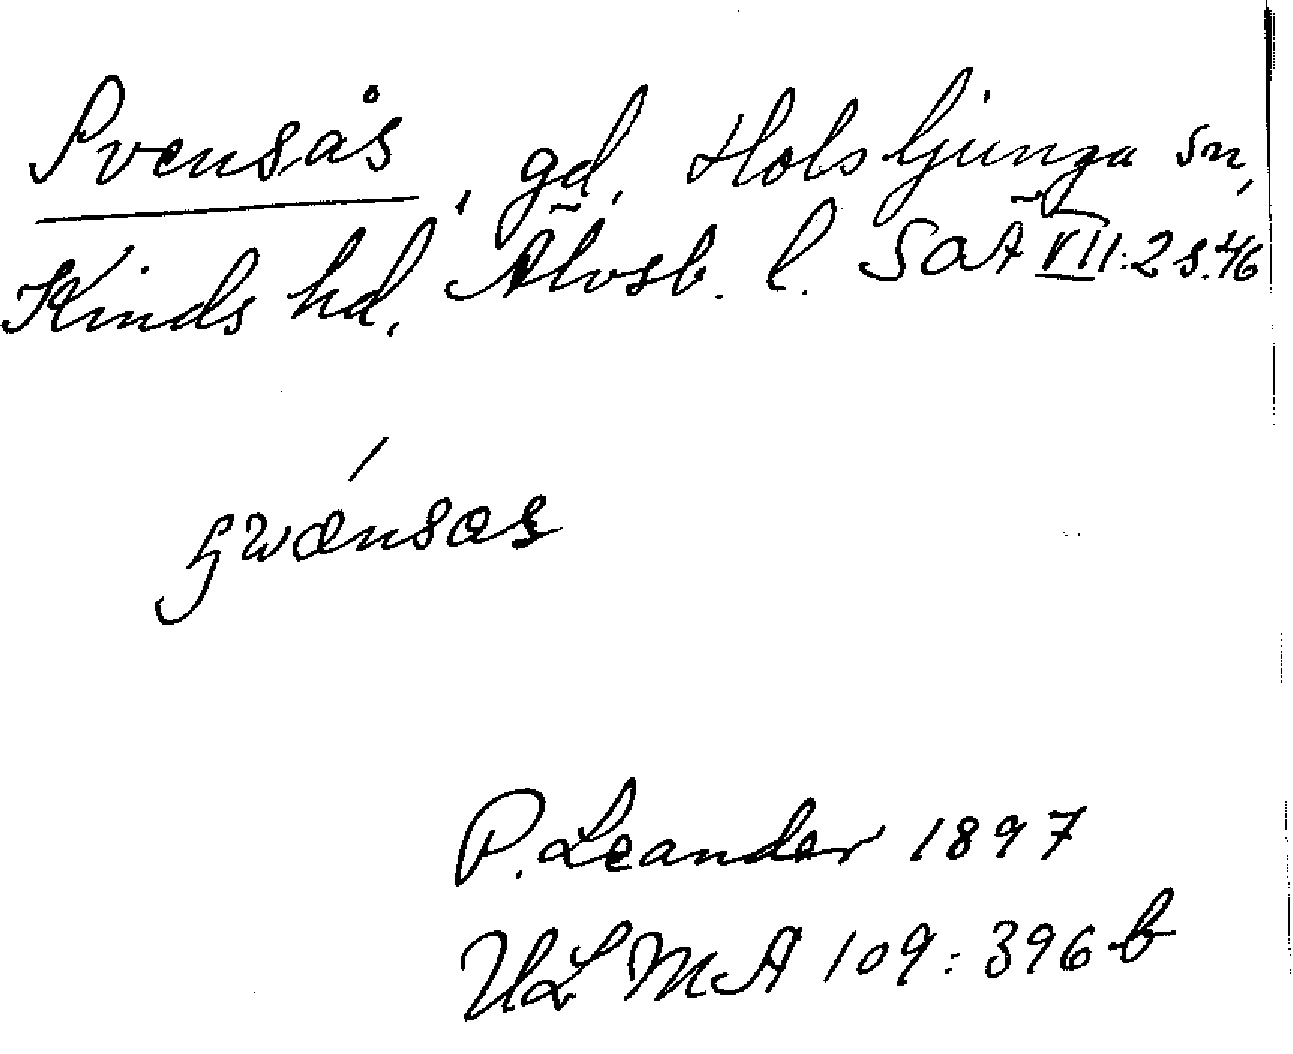 Svensås, gd, Holsljunga sn,
Kinds hd. Älvsb. l. SOÄ VII:2 s.46
P. Leander 1897
ULMA 109:396 b